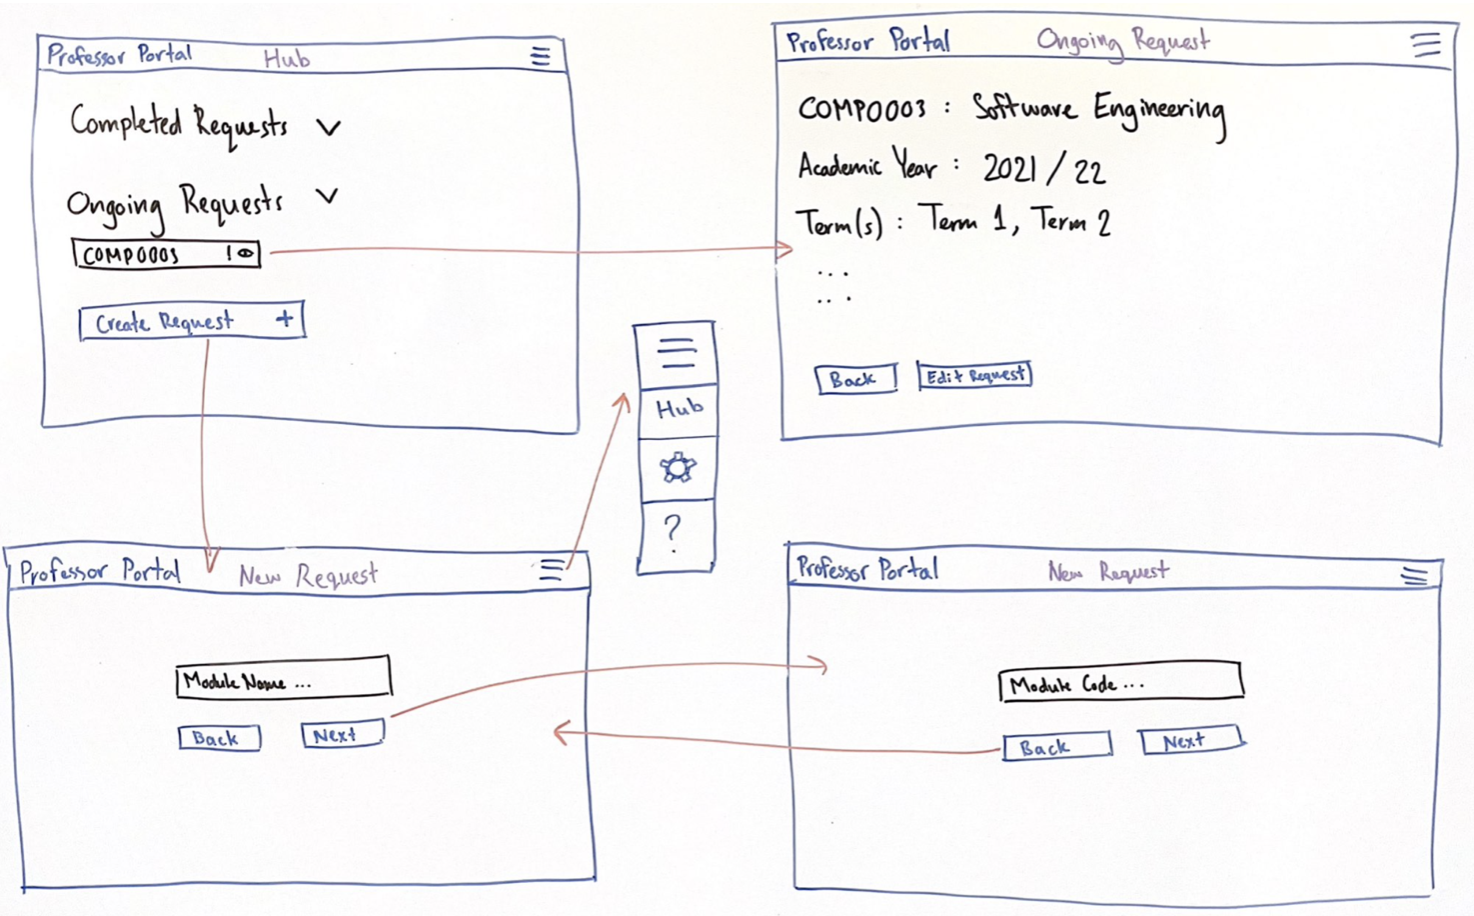 Professor Portal Hub
Completed Requests
Ongoing Requests
COMP0003 !
Create Request +
Professor Portal Ongoing Request
COMP0003 : Software Engineering
Academic Year : 2021 / 22
Term(s) : Term 1, Term 2
...
...
Back Edit Request
Hub
?
Professor Portal New Request
Module Name ...
Back Next
Professor Portal New Request
Module Code ...
Back Next